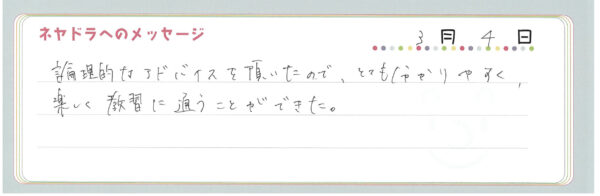 ネヤドラへのメッセージ
3月4日
論理的なアドバイスを頂いたので、とても分かりやすく、
楽しく教習に通うことができた。